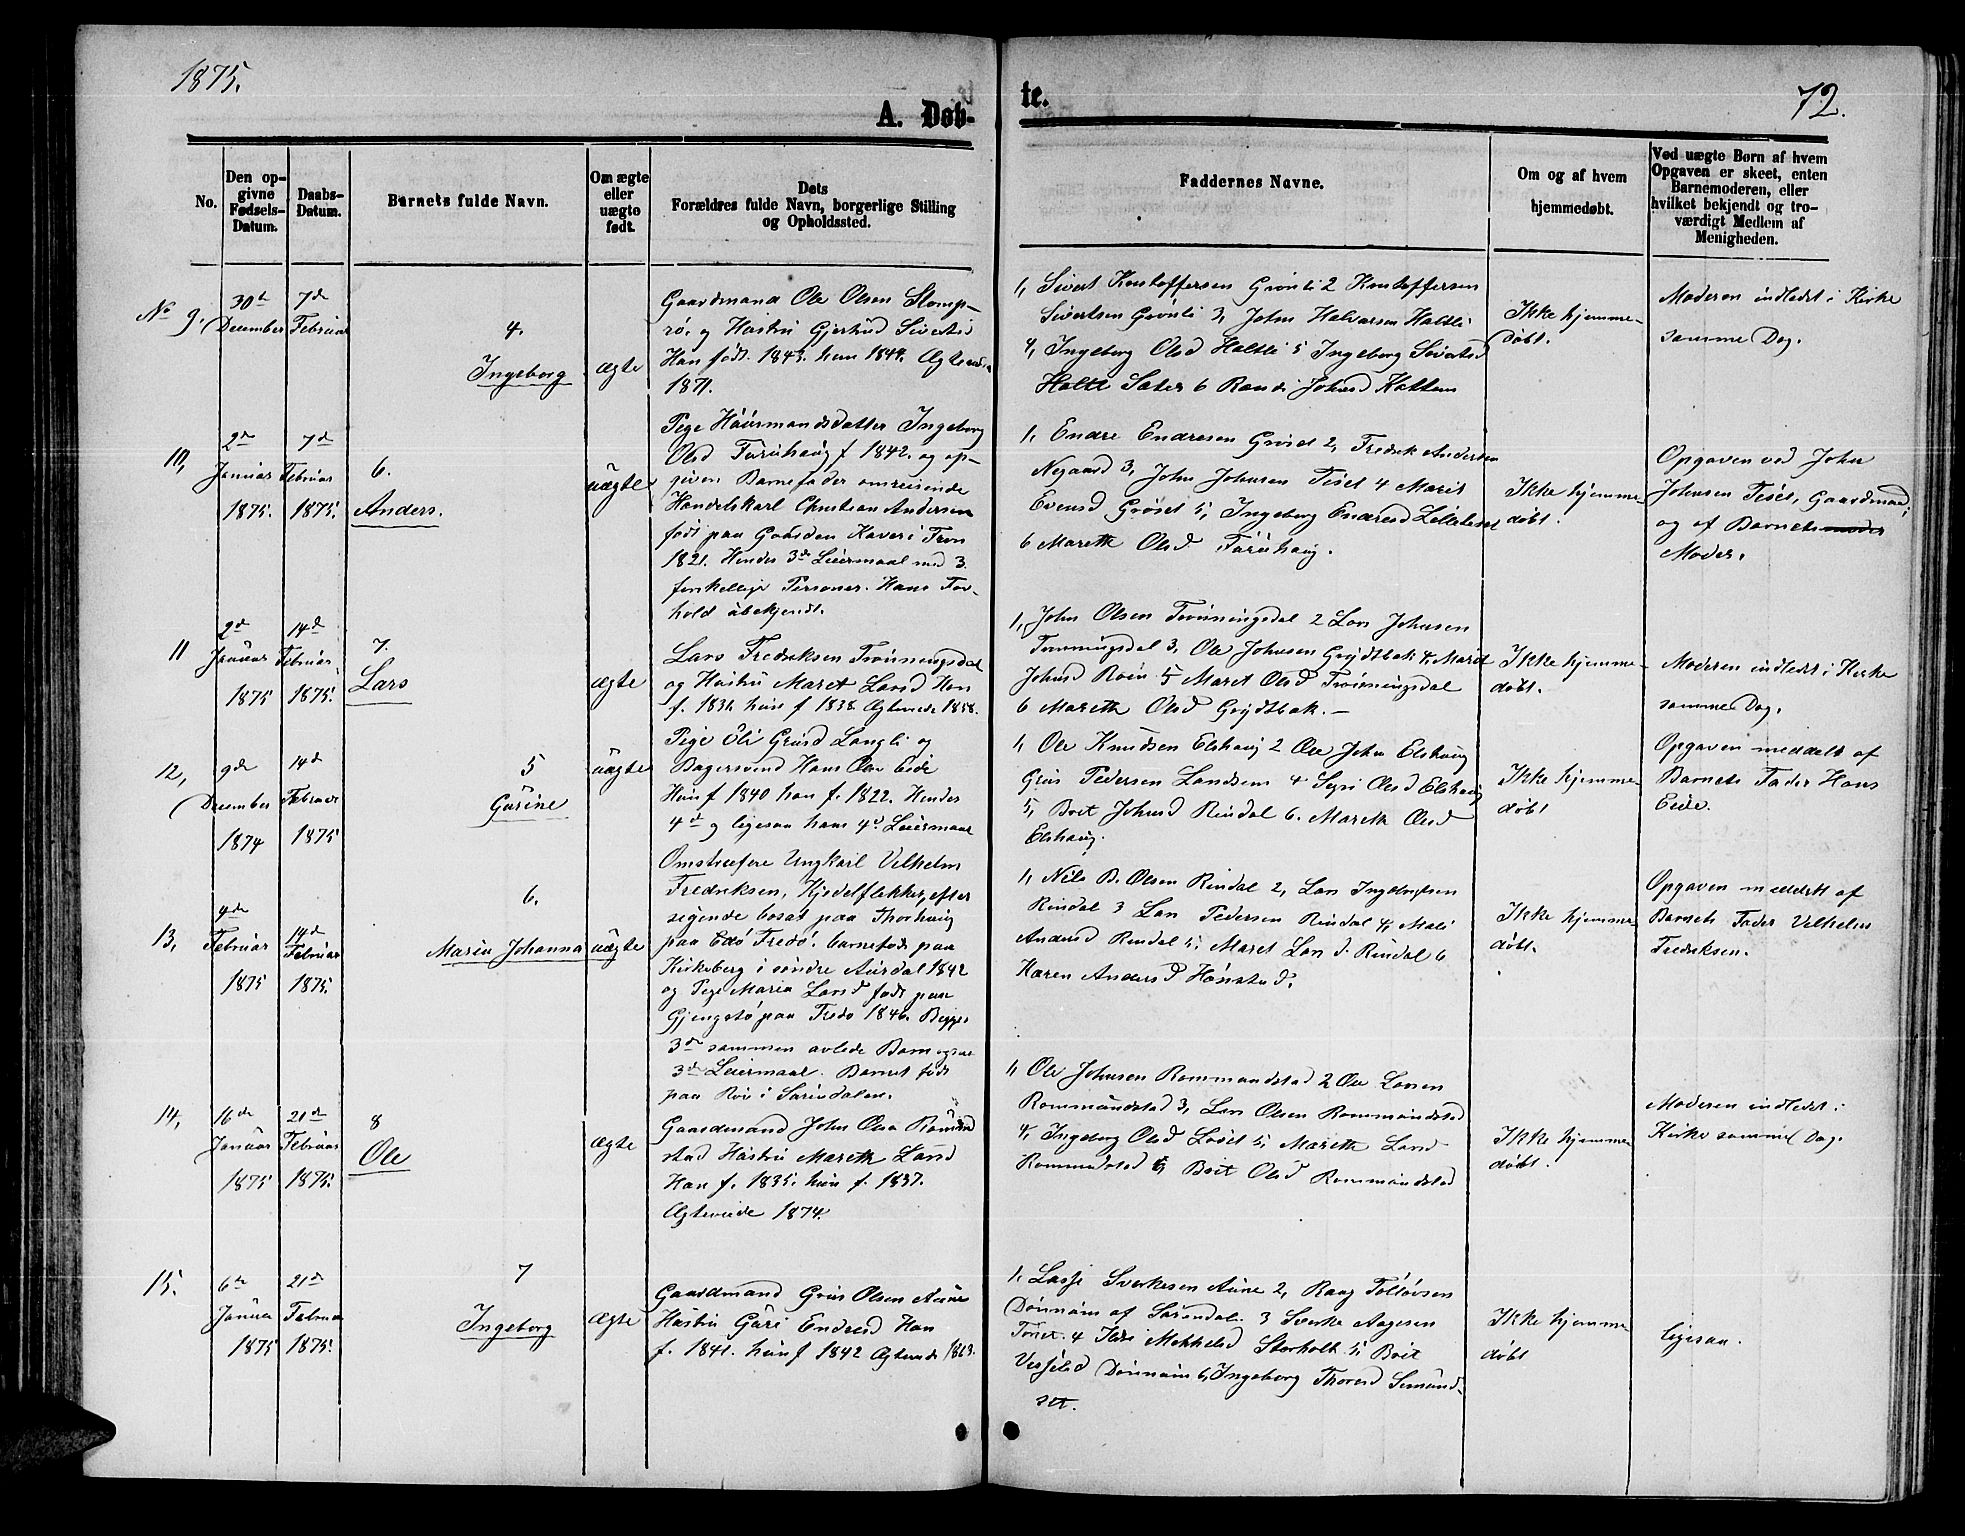 1875.
72.
A. Døb-
te.
No.
Den op-
givne
Fødsels-
Datum.
Daabs-
Datum.
Barnets fulde Navn.
Om ægte
eller
uægte
født.
Dets
Forældres fulde Navn, borgerlige Stilling
og Opholdssted.
Faddernes Navne.
Om og af hvem
hjemmedøbt.
Ved uægte Børn af hvem
Opgaven er skeet, enten
Barnemoderen, eller
hvilket bekjendt og tro-
værdigt Medlem af
Menigheden.
No 9.
30te
December
7de
Februar
4.
Ingeborg
ægte
Gaardmand Ole Olsen Stomp-
rø, og Hustru Gjertrud Sivertsd
Han født 1843. hun 1844. Ægteviede
1871.
1, Sivert Kristoffersen Grønli 2 Kristoffersen
Sivertsen Grønli 3, John Halvorsen Haltli
4, Ingeborg Olsd Haltli 5 Ingeborg Sivertsd
Haltli Sæter 6 Randi Johnsd Kattum
Ikke hjemme-
døbt.
Moderen indledet i Kirke
samme Dag.
10,
2de
Januar
1875.
7de
Februar
1875.
6.
Anders.
uægte
Pige Huusmandsdatter Ingeborg
Olsd Furuhaug f 1842. og op-
given Barnefader omreisende
Handelskarl Christian Andersen
født paa Gaarden Haver i Fron
1821. Hendes 3de Leiermaal med 3
forskellige Personer. Hans For-
hold ubekjendt.
1, Endre Endresen Grøset 2, Fredrik Andersen
Negaard 3, John Johnsen Tiset 4 Marit
Evensd Grøset 5, Ingeborg Endresd Lilletiset
6 Mareth Olsd Furuhaug.
Ikke hjemme-
døbt.
Opgaven ved John
Johnsen Tiset, Gaardmand,
og af Barnets moder
Moder.
11
2de
Januar
1875
14de
Februar
1875.
7.
Lars
ægte
Lars Fredriksen Tronningsdal
og Hustru Maret Larsd Han
f. 1831. hun f 1838. Ægteviede 1858.
1, John Olsen Tronningsdal 2 Lars Johnsen
Tronningsdal 3, Ole Johnsen Grytbak 4 Marit
Johnsd Røen 5 Maret Olsd Tronningsdal
6 Mareth Olsd Grytbak. –
Ikke hjemme-
døbt.
Moderen indledet i Kirke
samme Dag.
12,
9de
December
1874
14de
Februar
1875
5
Gurine
uægte
Pige Eli Grusd Langli og
Bagersvend Hans Olsen Eide
Hun f 1840 han f. 1822. Hendes
4de og ligesaa hans 4de Leiermaal
1, Ole Knudsen Elshaug 2 Ole John Elshaug
Grus Pedersen Landsem 4 Segri Olsd Elshaug
5, Brit Johnsd Rindal 6. Mareth Olsd
Elshaug.
Ikke hjemme
døbt
Opgaven meddelt af
Barnets Fader Hans
Eide.
13,
4de
Februar
1875
14de
Februar
1875.
6.
Maria Johanna
uægte
Omstreifere Ungkarl Velhelm
Fredriksen, Kjedelflekker, efter
sigende bosat paa Thorhaug
paa Edø Fredø, barnefødt paa
Kirkeberg i søndre Aurdal 1842
og Pige Maria Larsd født paa
Gjengstø paa Fredø 1846. Begges
3de sammen avlede Barn ogsaa
3de Leiermaal. Barnet født
paa Röv i Surendalen.
1, Nils B. Olsen Rindal 2, Lars Ingebrigtsen
Rindal 3 Lars Pedersen Rindal 4, Mali
Andersd Rindal 5, Maret Larsd. Rindal 6
Karen Andersd Hønstad.
Ikke hjemme
døbt.
Opgaven meddelt af
Barnets Fader Velhelm
Fredriksen.
14,
16de
Januar
1875
21de
Februar
1875.
8
Ole
ægte
Gaardmand John Olsen Romund
stad Hustru Mareth Larsd
Han f. 1835. hun f. 1837.
Ægteviede 1874.
1, Ole Johnsen Rommundstad 2 Ole Larsen
Rommundstad 3, Lars Olsen Rommundstad
4, Ingeborg Olsd Løset 5, Mareth Larsd
Rommundstad 6, Brit Olsd Rommundstad
Ikke hjemme
døbt.
Moderen indledet i
Kirke samme Dag.
15.
6te
Januar
1875
21de
Februar
1875.
7
Ingeborg
ægte
Gaardmand Grus Olsen Aune
Hustru Guri Endresd Han
f. 1841. hun f 1842 Ægteviede 1863.
1, Lasse Sverkesen Aune 2, Roag Tollovsen
Dønnum af Surendal. 3 Sverke Aagesen
Tøset. 4 Ildri Mekkelsd Storholt 5, Brit
Dønnum 6, Ingeborg Thoresd Semund-
set.
Ikke hjemme
døbt
ligesaa.